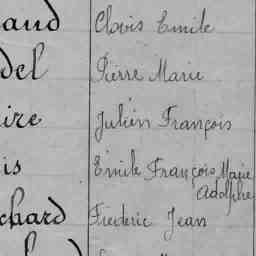 aud Clovis Emile
del Pierre Marie
ire Julien François
is Emile François Marie
Adolphe
chard Frederic Jean